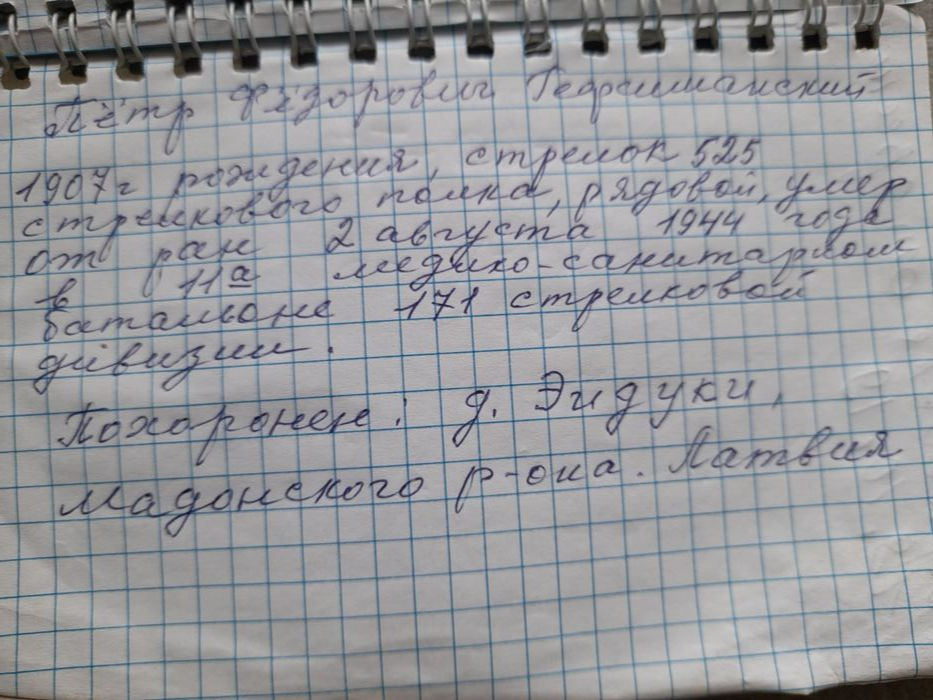 Пётр Фёдорович Гефсиманский
1907 г рождения, стрелок 525
стрелкового полка, рядовой, умер
от ран 2 августа 1944 года
в 11а медико-санитарном
батальоне 171 стрелковой
дивизии.
Похоронен: д. Эидуки,
Мадонского р-она. Латвия